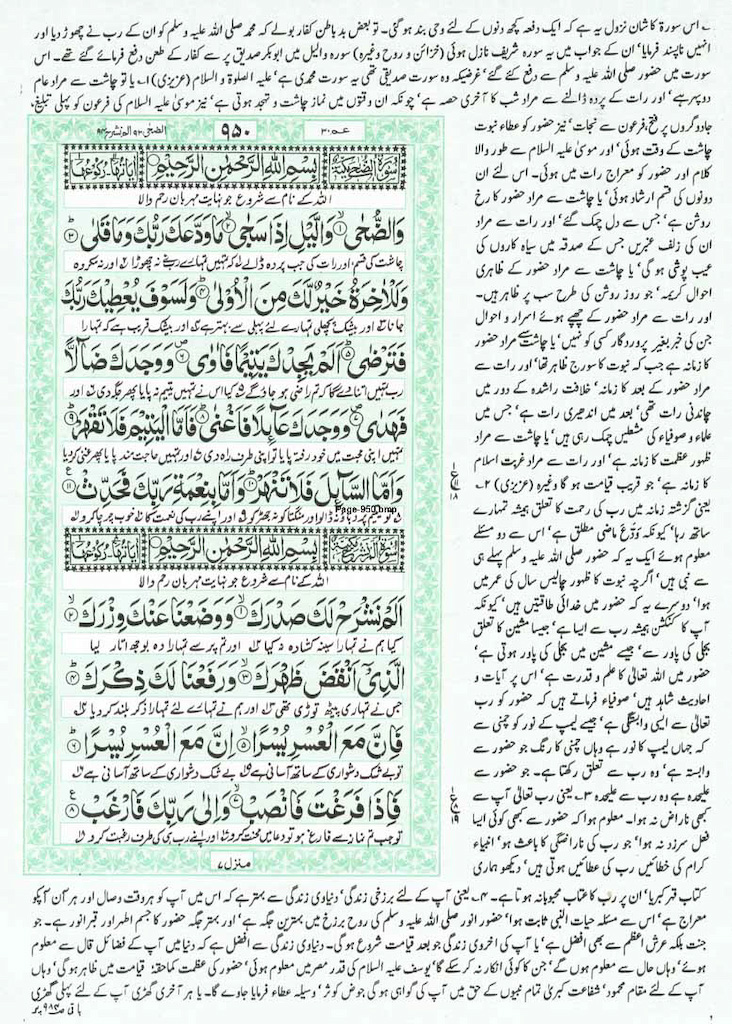 ۱۔ اس سورۃ کا شان نزول یہ ہے کہ ایک دفعہ کچھ دنوں کے لئے وحی بند ہو گئی۔ تو بعض بد باطن کفار بولے کہ محمد صلی اللہ علیہ وسلم کو ان کے رب نے چھوڑ دیا اور
انہیں ناپسند فرمایا' ان کے جواب میں یہ سورہ شریف نازل ہوئی (خزائن و روح وغیرہ) سورہ والیل میں ابوبکر صدیق پر سے کفار کے طعن دفع فرمائے گئے تھے۔ اس
سورت میں حضور صلی اللہ علیہ وسلم سے دفع کئے گئے' غرضیکہ وہ سورت صدیقی تھی یہ سورت محمدی ہے' علیہ الصلوۃ و السلام (عزیزی) ۱۔ یا تو چاشت سے مراد عام
دوپہر ہے' اور رات کے پردہ ڈالنے سے مراد شب کا آخری حصہ ہے' چونکہ ان وقتوں میں نماز چاشت و تہجد ہوتی ہے' نیز موسیٰ علیہ السلام کی فرعون کو پہلی تبلیغ'
جادوگروں پر فتح' فرعون سے نجات' نیز حضور کو عطاء نبوت
چاشت کے وقت ہوئی' اور موسیٰ علیہ السلام سے طور والا
کلام اور حضور کو معراج رات میں ہوئی۔ اس لئے ان
دونوں کی قسم ارشاد ہوئی' یا چاشت سے مراد حضور کا رخ
روشن ہے' جس سے دل چمک گئے' اور رات سے مراد
ان کی زلف عنبریں جس کے صدقہ میں سیاہ کاروں کی
عیب پوشی ہو گی' یا چاشت سے مراد حضور کے ظاہری
احوال کریمہ' جو روز روشن کی طرح سب پر ظاہر ہیں۔
اور رات سے مراد حضور کے چھپے ہوئے اسرار و احوال
جن کی خبر بغیر پروردگار کسی کو نہیں' یا چاشت سے مراد حضور
کا زمانہ ہے جب کہ نبوت کا سورج ظاہر تھا' اور رات سے
مراد حضور کے بعد کا زمانہ' خلافت راشدہ کے دور میں
چاندنی رات تھی' بعد میں اندھیری رات ہے' جس میں
علماء و صوفیاء کی مشعلیں چمک رہی ہیں' یا چاشت سے مراد
ظہور عظمت کا زمانہ ہے' اور رات سے مراد غربت اسلام
کا زمانہ ہے' جو قریب قیامت ہو گا وغیرہ (عزیزی) ۲۔
یعنی گزشتہ زمانہ میں رب کی رحمت کا تعلق ہمیشہ تمہارے
ساتھ رہا' کیونکہ وَدَّعَ ماضی مطلق ہے' اس سے دو مسئلے
معلوم ہوئے ایک یہ کہ حضور صلی اللہ علیہ وسلم پہلے ہی
سے نبی ہیں' اگرچہ نبوت کا ظہور چالیس سال کی عمر میں
ہوا' دوسرے یہ کہ حضور میں خدائی طاقتیں ہیں' کیونکہ
آپ کا کنکشن ہمیشہ رب سے ایسا ہے' جیسا مشین کا تعلق
بجلی کی پاور سے' جیسے مشین میں بجلی کی پاور ہوتی ہے'
حضور میں اللہ تعالیٰ کا علم و قدرت ہے' اس پر آیات و
احادیث شاہد ہیں' صوفیاء فرماتے ہیں کہ حضور کو رب
تعالیٰ سے ایسی وابستگی ہے' جیسے لیمپ کے نور کو چمنی سے
کہ جہاں لیمپ کا نور ہے وہاں چمنی کا رنگ' جو حضور سے
وابستہ ہے' وہ رب سے تعلق رکھتا ہے۔ جو حضور سے
علیحدہ ہے وہ رب سے علیحدہ ۳۔ یعنی رب تعالیٰ آپ سے
کبھی ناراض نہ ہوا۔ معلوم ہوا کہ حضور سے کبھی کوئی ایسا
فعل سرزد نہ ہوا' جو رب کی ناراضگی کا باعث ہو' انبیاء
کرام کی خطائیں رب کی عطائیں ہوتی ہیں' دیکھو ہماری
الضحیٰ ۹۳ الم نشرح ۹۴
۹۵۰
عم ۳۰
سُورَةُ الضُّحٰى مَكِّيَّةٌ بِسْمِ اللّٰهِ الرَّحْمٰنِ الرَّحِيْمِ اٰيَاتُهَا ۱۱ رُكُوْعُهَا ۱
اللہ کے نام سے شروع جو نہایت مہربان رحم والا
وَالضُّحٰى ۝۱ وَالَّيْلِ اِذَا سَجٰى ۝۲ مَا وَدَّعَكَ رَبُّكَ وَمَا قَلٰى ۝۳
چاشت کی قسم اور رات کی جب پردہ ڈالے کہ تمہیں تمہارے رب نے نہ چھوڑا اور نہ مکروہ
وَلَلْاٰخِرَةُ خَيْرٌ لَّكَ مِنَ الْاُوْلٰى ۝۴ وَلَسَوْفَ يُعْطِيْكَ رَبُّكَ
جانا اور بیشک پچھلی تمہارے لئے پہلی سے بہتر ہے اور بیشک قریب ہے کہ تمہارا
فَتَرْضٰى ۝۵ اَلَمْ يَجِدْكَ يَتِيْمًا فَاٰوٰى ۝۶ وَوَجَدَكَ ضَآلًّا
رب تمہیں اتنا دے گا کہ تم راضی ہو جاؤ گے کیا اس نے تمہیں یتیم نہ پایا پھر جگہ دی اور
فَهَدٰى ۝۷ وَوَجَدَكَ عَآئِلًا فَاَغْنٰى ۝۸ فَاَمَّا الْيَتِيْمَ فَلَا تَقْهَرْ ۝۹
تمہیں اپنی محبت میں خود رفتہ پایا تو اپنی طرف راہ دی اور تمہیں حاجت مند پایا پھر غنی کر دیا
وَاَمَّا السَّآئِلَ فَلَا تَنْهَرْ ۝۱۰ وَاَمَّا بِنِعْمَةِ رَبِّكَ فَحَدِّثْ ۝۱۱
تو یتیم پر دباؤ نہ ڈالو اور منگتا کو نہ جھڑکو اور اپنے رب کی نعمت کا خوب چرچا کرو
Page-950.bmp
سُورَةُ اَلَمْ نَشْرَحْ مَكِّيَّةٌ بِسْمِ اللّٰهِ الرَّحْمٰنِ الرَّحِيْمِ اٰيَاتُهَا ۸ رُكُوْعُهَا ۱
اللہ کے نام سے شروع جو نہایت مہربان رحم والا
اَلَمْ نَشْرَحْ لَكَ صَدْرَكَ ۝۱ وَوَضَعْنَا عَنْكَ وِزْرَكَ ۝۲
کیا ہم نے تمہارا سینہ کشادہ نہ کیا اور تم پر سے تمہارا وہ بوجھ اتار لیا
الَّذِيْٓ اَنْقَضَ ظَهْرَكَ ۝۳ وَرَفَعْنَا لَكَ ذِكْرَكَ ۝۴
جس نے تمہاری پیٹھ توڑی تھی اور ہم نے تمہارے لئے تمہارا ذکر بلند کر دیا
فَاِنَّ مَعَ الْعُسْرِ يُسْرًا ۝۵ اِنَّ مَعَ الْعُسْرِ يُسْرًا ۝۶
تو بے شک دشواری کے ساتھ آسانی ہے بے شک دشواری کے ساتھ آسانی ہے
فَاِذَا فَرَغْتَ فَانْصَبْ ۝۷ وَاِلٰى رَبِّكَ فَارْغَبْ ۝۸
تو جب تم نماز سے فارغ ہو تو دعا میں محنت کرو اور اپنے رب ہی کی طرف رغبت کرو
منزل ۷
کتاب قہر کبریا' ان پر رب کا عتاب محبوبانہ ہوتا ہے۔ ۴۔ یعنی آپ کے لئے برزخی زندگی' دنیاوی زندگی سے بہتر ہے کہ اس میں آپ کو ہر وقت وصال اور ہر آن آپ کو
معراج ہے' اس سے مسئلہ حیات النبی ثابت ہوا' حضور انور صلی اللہ علیہ وسلم کی روح برزخ میں بہترین جگہ ہے' اور بہتر جگہ حضور کا جسم اطہر اور قبر انور ہے۔ جو
جنت بلکہ عرش اعظم سے بھی افضل ہے' یا آپ کی اخروی زندگی جو بعد قیامت شروع ہو گی۔ دنیاوی زندگی سے افضل ہے کہ دنیا میں آپ کے فضائل قال سے معلوم
ہوئے' وہاں حال سے معلوم ہوں گے' جن کا کوئی انکار نہ کر سکے گا' یوسف علیہ السلام کی قدر مصر میں معلوم ہوئی' حضور کی عظمت کماحقہٗ قیامت میں ظاہر ہو گی' وہاں
آپ کے لئے مقام محمود' شفاعت کبریٰ تمام نبیوں کے حق میں آپ کی گواہی ہو گی حوض کوثر' وسیلہ عطاء فرمایا جاوے گا۔ یا ہر آخری گھڑی آپ کے لئے پہلی گھڑی
باقی صفحہ ۹۸۳ پر